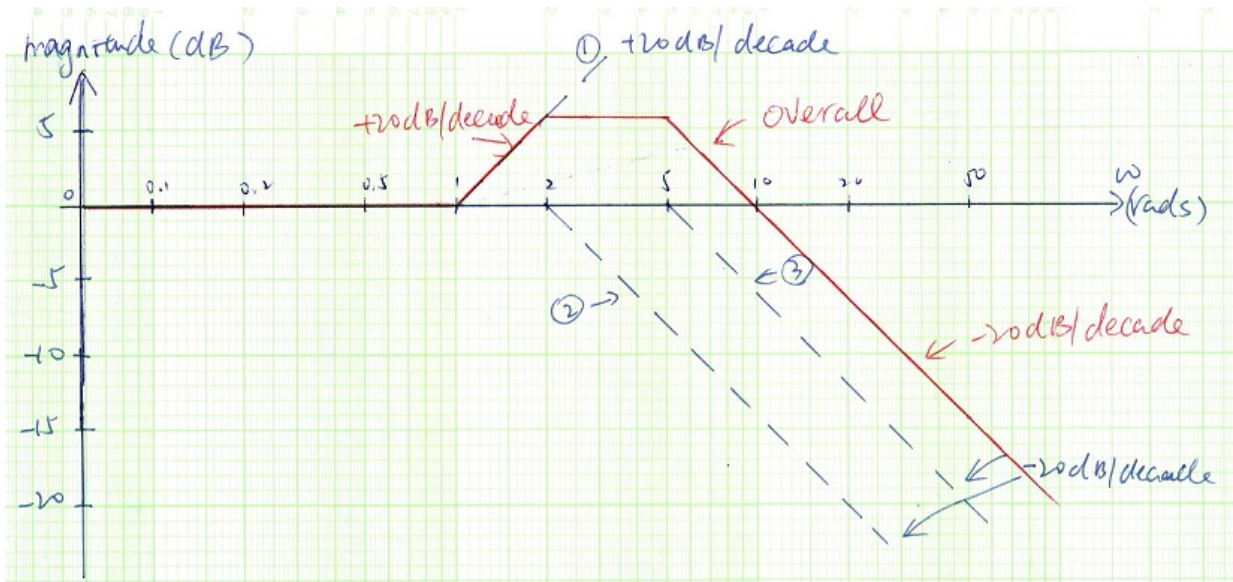 magnitude (dB)
① +20dB/decade
+20dB/decade
overall
5
0
0.1
0.2
0.5
1
2
5
10
20
50
ω
(rads)
-5
②
③
-20dB/decade
-10
-15
-20dB/decade
-20